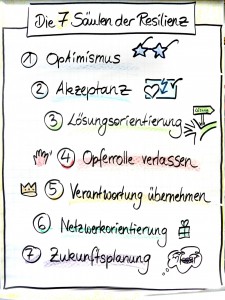 Die 7 Säulen der Resilienz
① Optimismus
② Akzeptanz
③ Lösungsorientierung
④ Opferrolle verlassen
⑤ Verantwortung übernehmen
⑥ Netzwerkorientierung
⑦ Zukunftsplanung